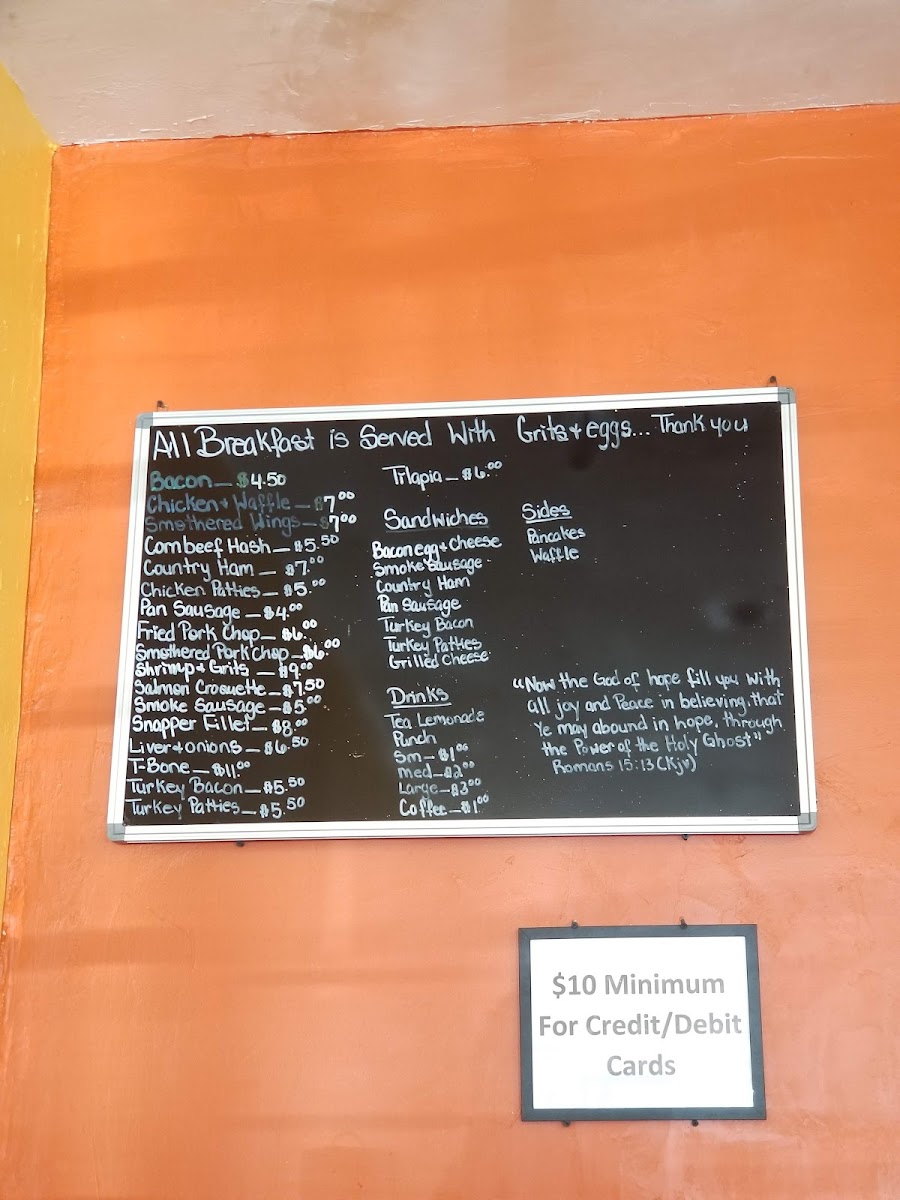 All Breakfast is Served With Grits + eggs... Thank you
Bacon — $4.50
Chicken + Waffle — $7.00
Smothered Wings — $7.00
Cornbeef Hash — $5.50
Country Ham — $7.00
Chicken Patties — $5.00
Pan Sausage — $4.00
Fried Pork Chop — $6.00
Smothered Pork Chop — $6.00
Shrimp + Grits — $9.00
Salmon Croquette — $7.50
Smoke Sausage — $5.00
Snapper Fillet — $8.00
Liver + onions — $6.50
T-Bone — $11.00
Turkey Bacon — $5.50
Turkey Patties — $5.50
Tilapia — $6.00
Sandwiches
Bacon egg + cheese
Smoke Sausage
Country Ham
Pan Sausage
Turkey Bacon
Turkey Patties
Grilled Cheese
Drinks
Tea Lemonade
Punch
Sm — $1.00
med — $2.00
Large — $3.00
Coffee — $1.00
Sides
Pancakes
Waffle
"Now the God of hope fill you with
all joy and Peace in believing, that
Ye may abound in hope, through
the Power of the Holy Ghost"
Romans 15:13 (Kjv)
$10 Minimum
For Credit/Debit
Cards